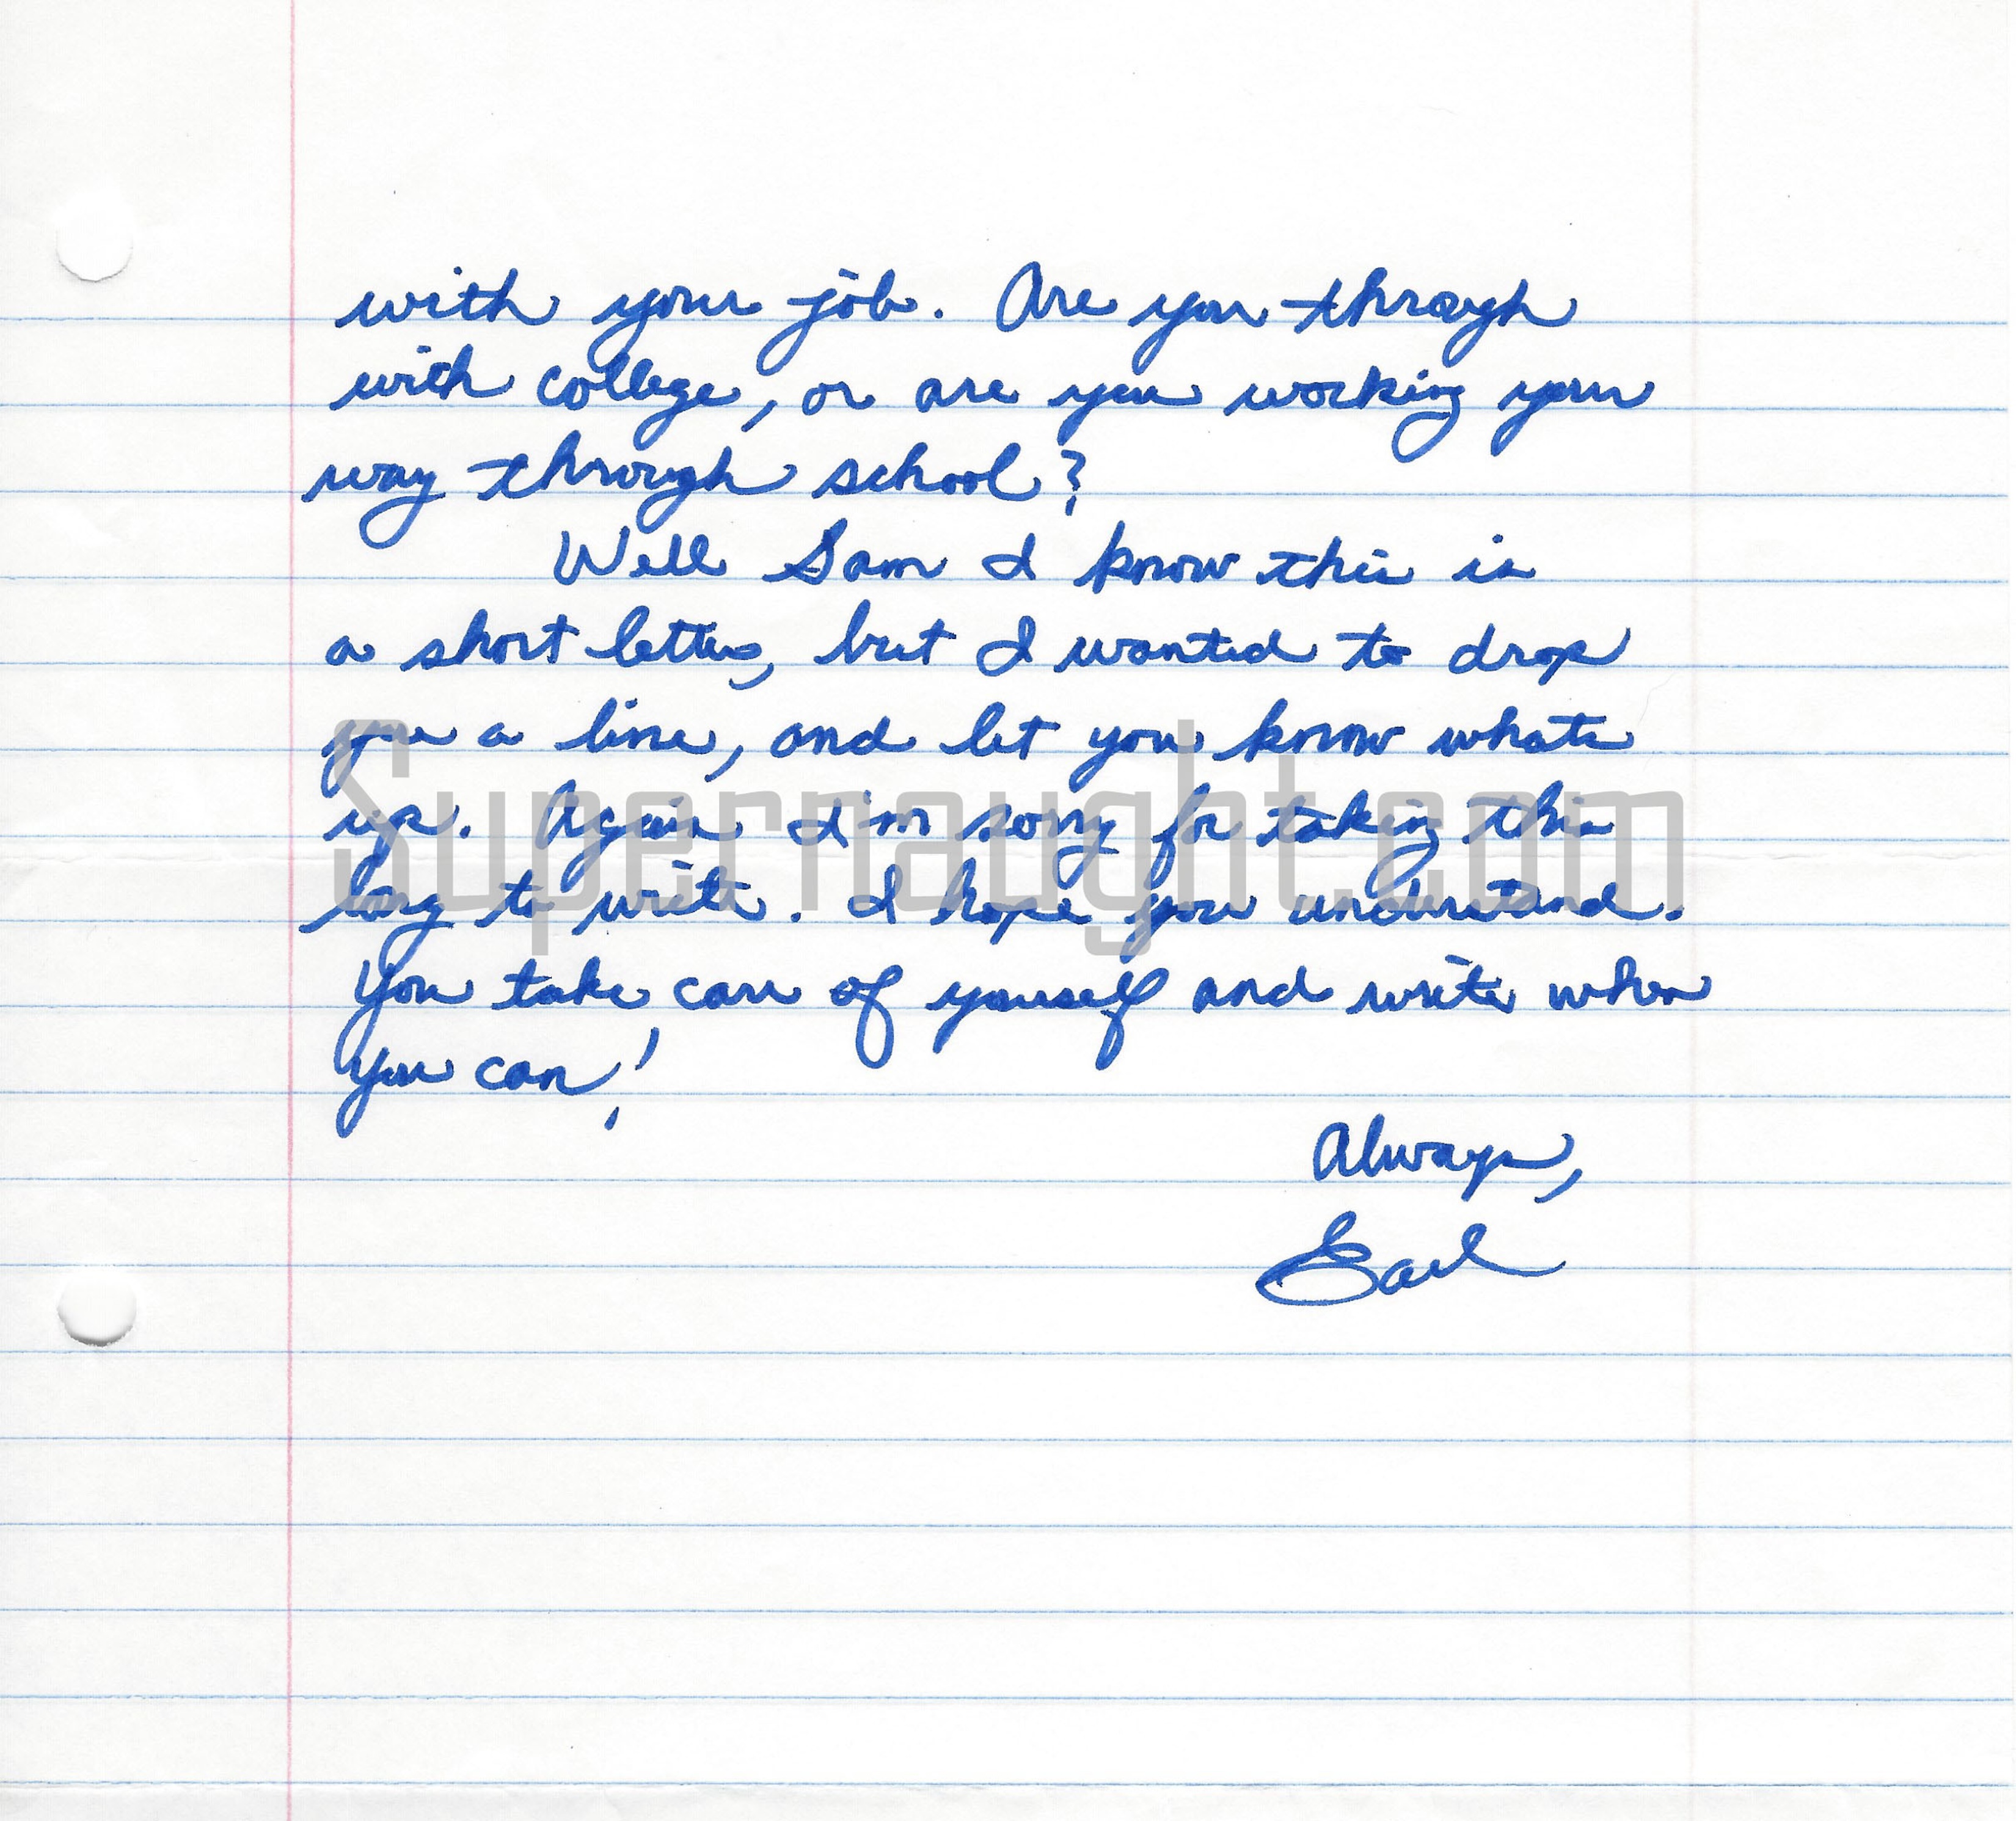 with your job. Are you through
with college, or are you working your
way through school?
Well Sam I know this is
a short letter, but I wanted to drop
you a line, and let you know whats
up. Again I'm sorry for taking this
long to write. I hope you understand.
You take care of yourself and write when
you can!
Always,
Earl
Supernaught.com